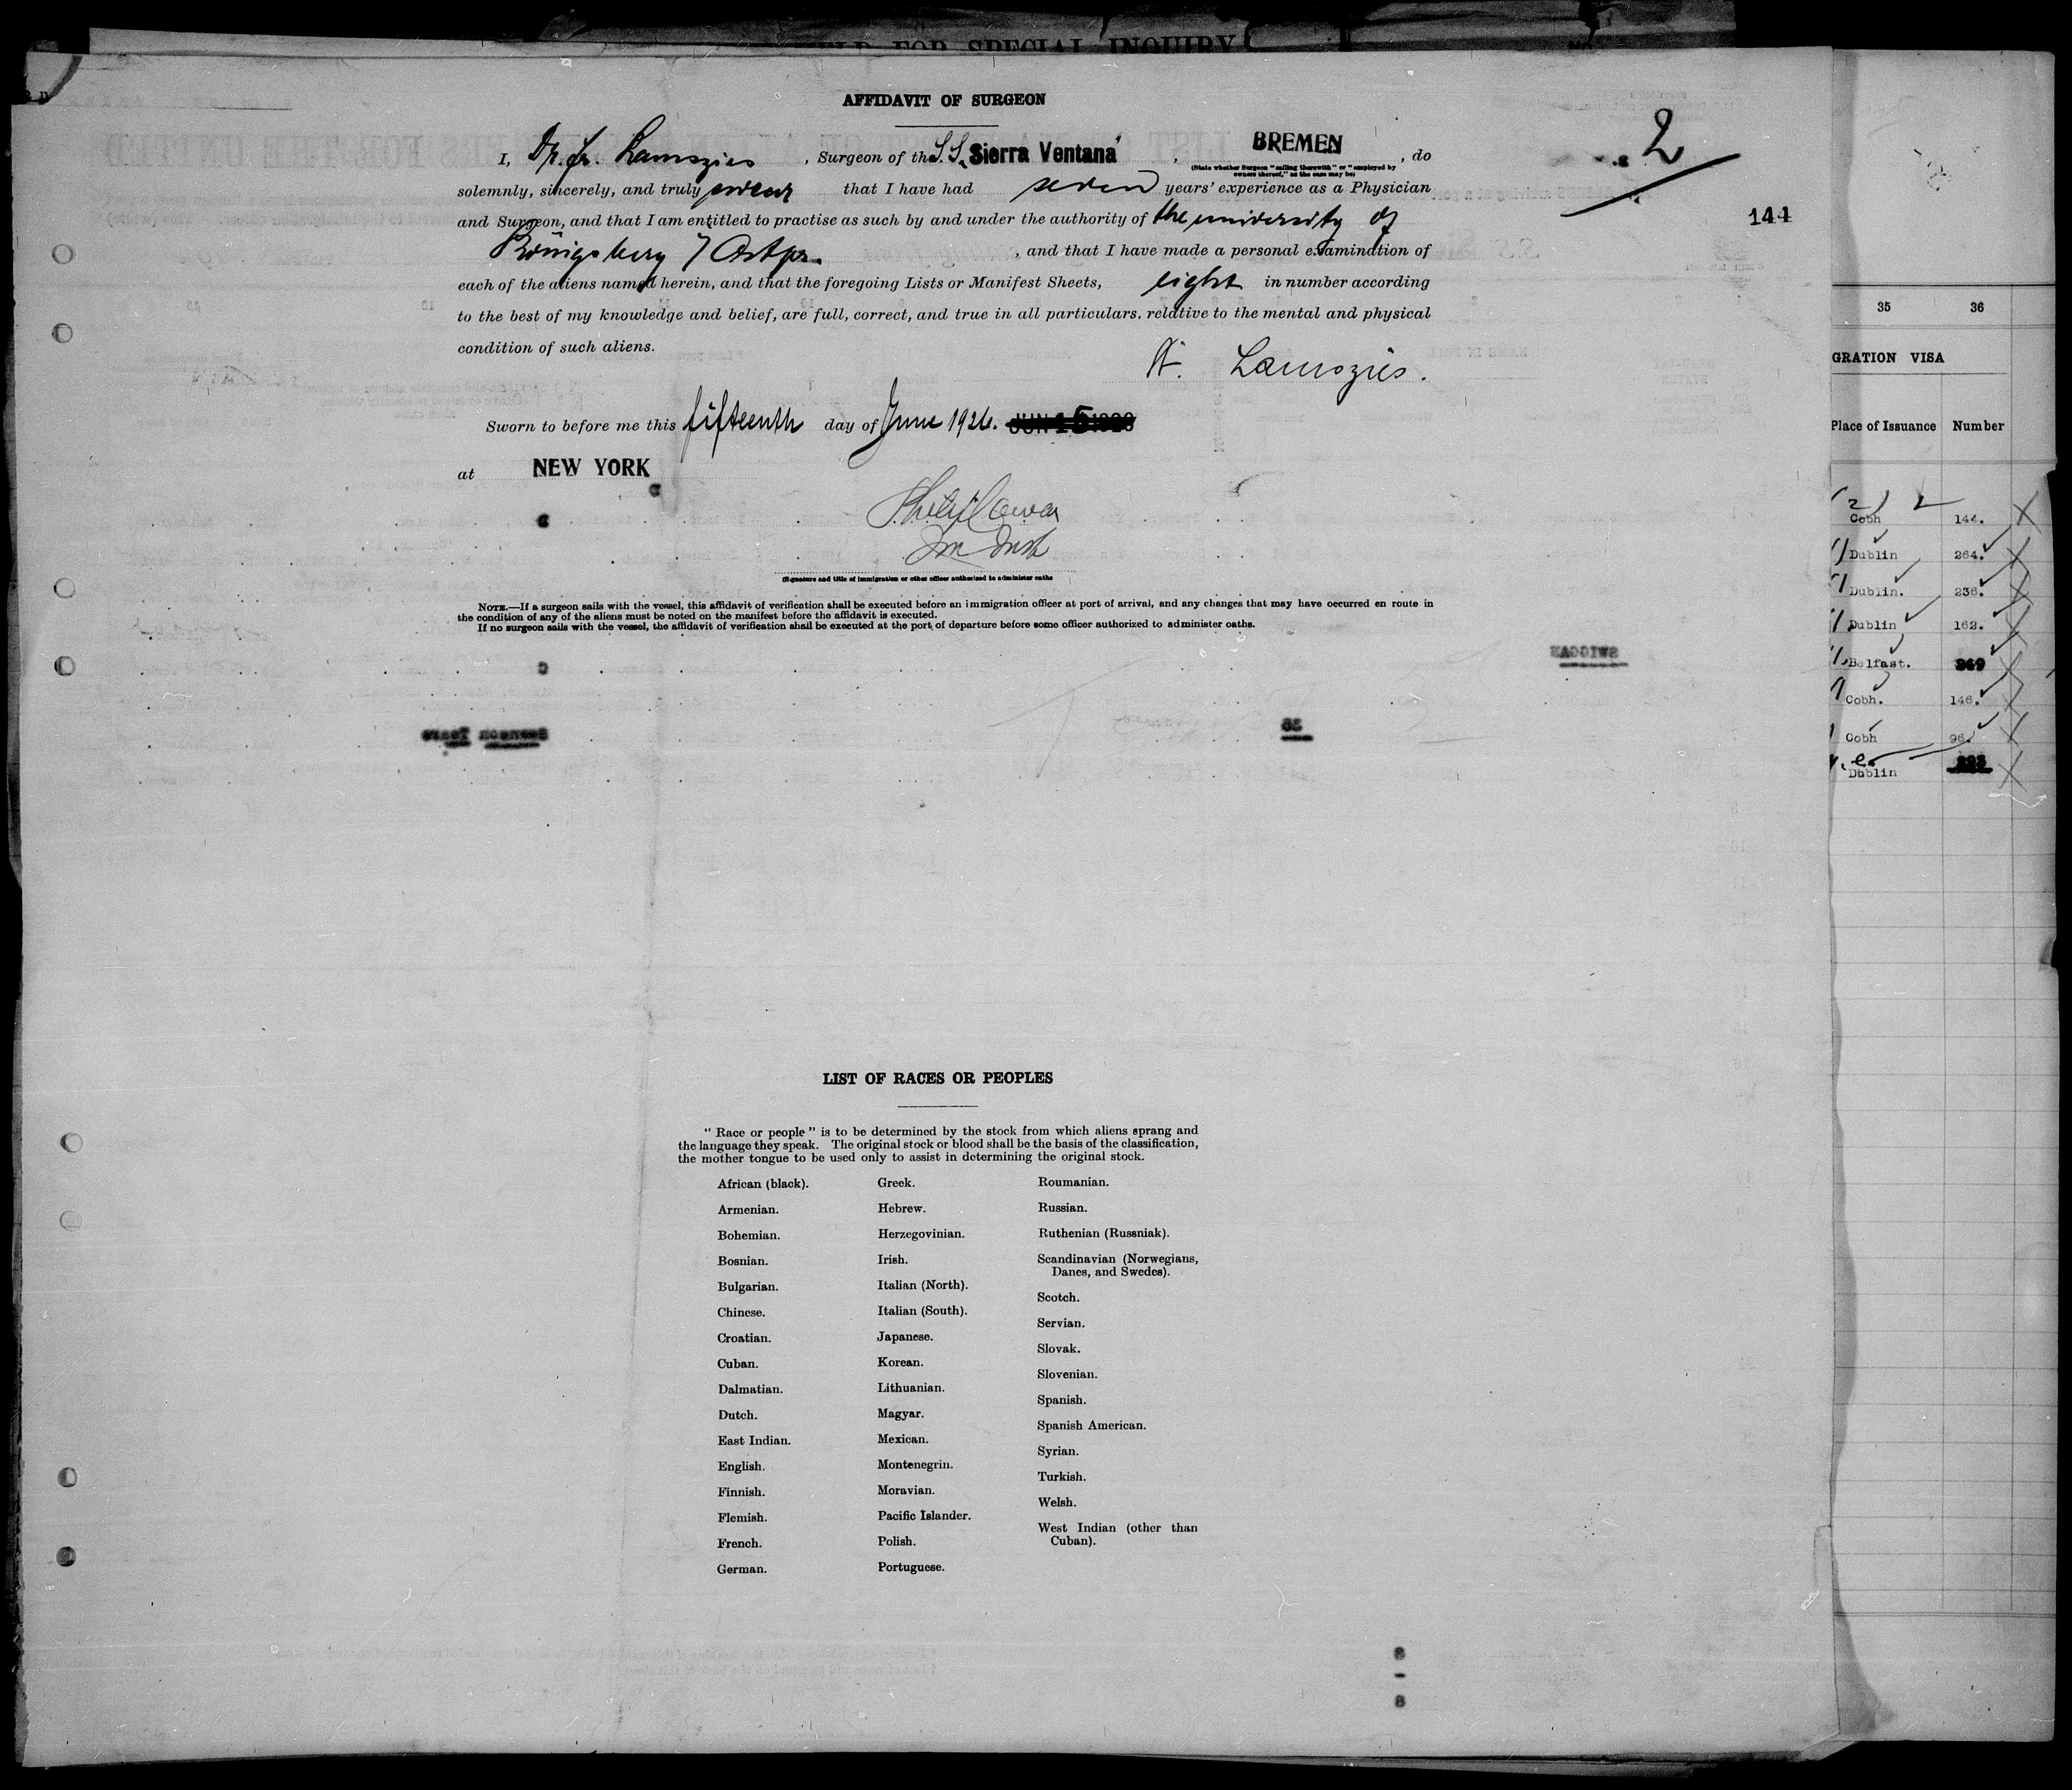 FOR SPECIAL INQUIRY
AFFIDAVIT OF SURGEON
I, Dr. Fr. Lamszies, Surgeon of the S.S. "Sierra Ventana", BREMEN, do
(State whether Surgeon "sailing therewith" or "employed by
owners thereof," as the case may be)
solemnly, sincerely, and truly swear that I have had seven years' experience as a Physician
and Surgeon, and that I am entitled to practise as such by and under the authority of the university of
Königsberg / Ostpr., and that I have made a personal examination of
each of the aliens named herein, and that the foregoing Lists or Manifest Sheets, eight in number according
to the best of my knowledge and belief, are full, correct, and true in all particulars, relative to the mental and physical
condition of such aliens.
Lamszies.
Sworn to before me this fifteenth day of June 1926. JUN 15 1926
at NEW YORK
(Signature and title of immigration or other officer authorized to administer oaths
NOTE.—If a surgeon sails with the vessel, this affidavit of verification shall be executed before an immigration officer at port of arrival, and any changes that may have occurred en route in
the condition of any of the aliens must be noted on the manifest before the affidavit is executed.
If no surgeon sails with the vessel, the affidavit of verification shall be executed at the port of departure before some officer authorized to administer oaths.
2
144
LIST OF RACES OR PEOPLES
"Race or people" is to be determined by the stock from which aliens sprang and
the language they speak. The original stock or blood shall be the basis of the classification,
the mother tongue to be used only to assist in determining the original stock.
African (black).
Armenian.
Bohemian.
Bosnian.
Bulgarian.
Chinese.
Croatian.
Cuban.
Dalmatian.
Dutch.
East Indian.
English.
Finnish.
Flemish.
French.
German.
Greek.
Hebrew.
Herzegovinian.
Irish.
Italian (North).
Italian (South).
Japanese.
Korean.
Lithuanian.
Magyar.
Mexican.
Montenegrin.
Moravian.
Pacific Islander.
Polish.
Portuguese.
Roumanian.
Russian.
Ruthenian (Russniak).
Scandinavian (Norwegians,
Danes, and Swedes).
Scotch.
Servian.
Slovak.
Slovenian.
Spanish.
Spanish American.
Syrian.
Turkish.
Welsh.
West Indian (other than
Cuban).
35 36
GRATION VISA
Place of Issuance Number
Cobh 144.
Dublin 264.
Dublin. 236.
Dublin 162.
Belfast. 269
Cobh. 146.
Cobh 96.
Dublin